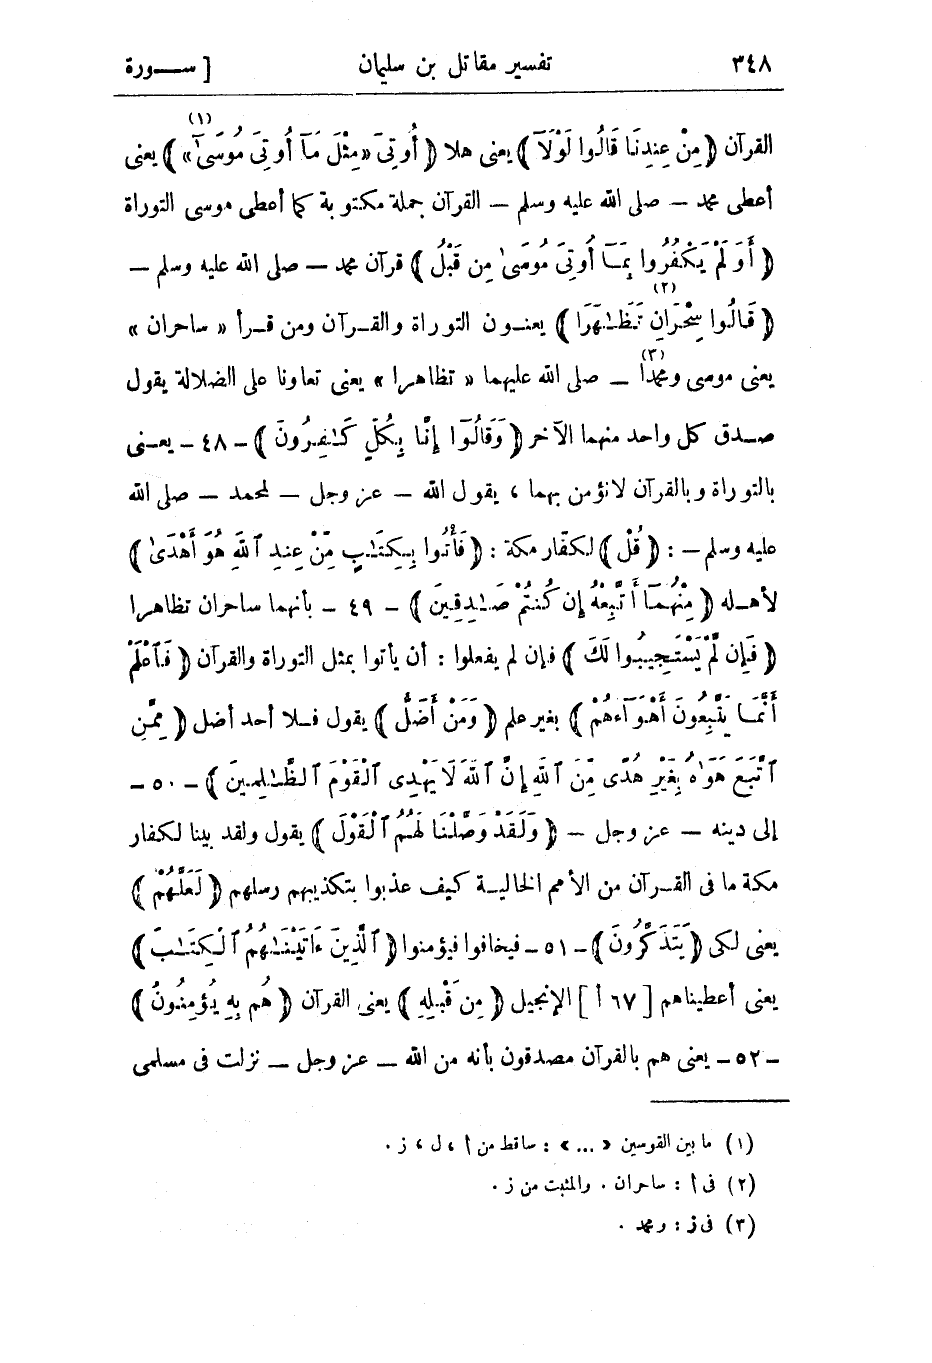 ٣٤٨ تفسير مقاتل بن سليمان [ ســورة
القرآن ﴿ مِنْ عِندِنَا قَالُوا لَوْلَآ ﴾ يعنى هلا ﴿ أُوتِىَ «مِثْلَ مَآ أُوتِىَ مُوسَىٰٓ» (١) ﴾ يعنى
أعطى محمد — صلى الله عليه وسلم — القرآن جملة مكتوبة كما أعطى موسى التوراة
﴿ أَوَلَمْ يَكْفُرُوا بِمَآ أُوتِىَ مُوسَىٰ مِن قَبْلُ ﴾ قرآن محمد — صلى الله عليه وسلم —
﴿ قَالُوا سِحْرَانِ (٢) تَظَـٰهَرَا ﴾ يعنــون التوراة والقــرآن ومن قــرأ « ساحران »
يعنى موسى ومحمدًا (٣) — صلى الله عليهما « تظاهرا » يعنى تعاونا على الضلالة يقول
صــدق كل واحد منهما الآخر ﴿ وَقَالُوٓا إِنَّا بِكُلٍّ كَـٰفِرُونَ ﴾ — ٤٨ — يعــنى
بالتوراة وبالقرآن لانؤمن بهما ، يقول الله — عز وجل — لمحمد — صلى الله
عليه وسلم — : ﴿ قُلْ ﴾ لكفار مكة : ﴿ فَأْتُوا بِكِتَـٰبٍ مِّنْ عِندِ ٱللَّهِ هُوَ أَهْدَىٰ ﴾
لأهــله ﴿ مِنْهُمَآ أَتَّبِعْهُ إِن كُنتُمْ صَـٰدِقِينَ ﴾ — ٤٩ — بأنهما ساحران تظاهرا
﴿ فَإِن لَّمْ يَسْتَجِيبُوا لَكَ ﴾ فإن لم يفعلوا : أن يأتوا بمثل التوراة والقرآن ﴿ فَٱعْلَمْ
أَنَّمَـا يَتَّبِعُونَ أَهْوَآءَهُمْ ﴾ بغير علم ﴿ وَمَنْ أَضَلُّ ﴾ يقول فــلا أحد أضل ﴿ مِمَّنِ
ٱتَّبَعَ هَوَاهُ بِغَيْرِ هُدًى مِّنَ ٱللَّهِ إِنَّ ٱللَّهَ لَا يَهْدِى ٱلْقَوْمَ ٱلظَّـٰلِمِينَ ﴾ — ٥٠ —
إلى دينه — عز وجل — ﴿ وَلَقَدْ وَصَّلْنَا لَهُمُ ٱلْقَوْلَ ﴾ يقول ولقد بينا لكفار
مكة ما فى القــرآن من الأمم الخاليــة كيف عذبوا بتكذيبهم رسلهم ﴿ لَعَلَّهُمْ ﴾
يعنى لكى ﴿ يَتَذَكَّرُونَ ﴾ — ٥١ — فيخافوا فيؤمنوا ﴿ ٱلَّذِينَ ءَاتَيْنَـٰهُمُ ٱلْكِتَـٰبَ ﴾
يعنى أعطيناهم [ ٦٧ أ ] الإنجيل ﴿ مِن قَبْلِهِ ﴾ يعنى القرآن ﴿ هُم بِهِ يُؤْمِنُونَ ﴾
— ٥٢ — يعنى هم بالقرآن مصدقون بأنه من الله — عز وجل — نزلت فى مسلمى
(١) ما بين القوسين « ... » : ساقط من أ ، ل ، ز .
(٢) فى أ : ساحران . والمثبت من ز .
(٣) فى ز : ومحمد .